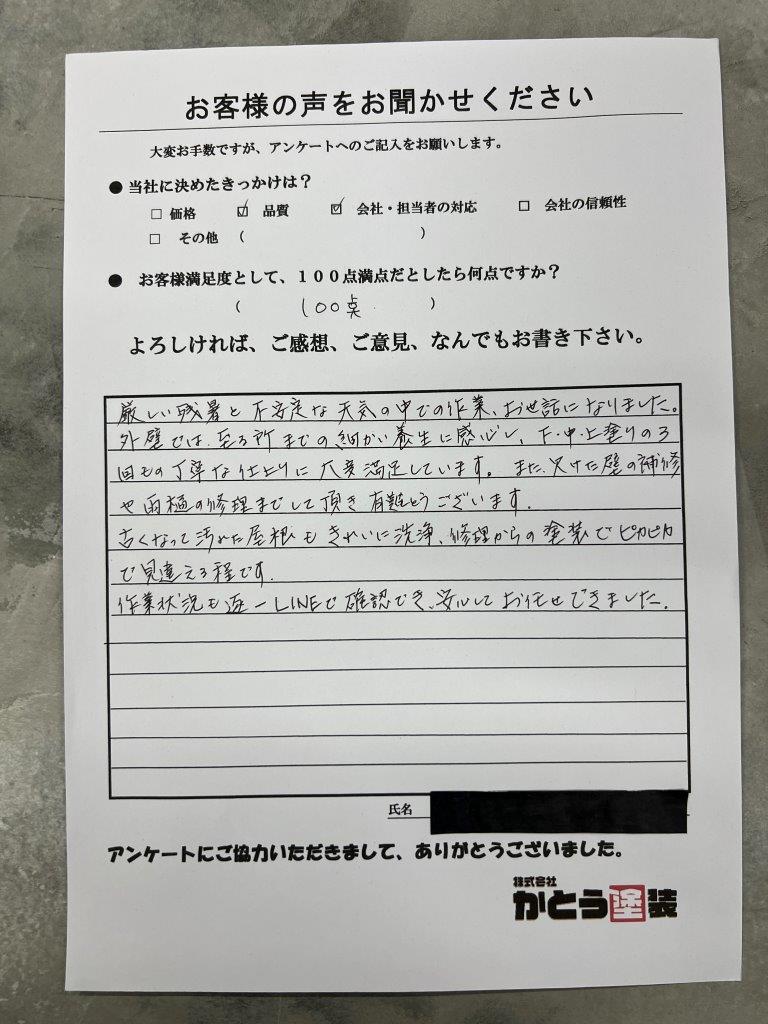 お客様の声をお聞かせください
大変お手数ですが、アンケートへのご記入をお願いします。
● 当社に決めたきっかけは？
□ 価格 ☑ 品質 ☑ 会社・担当者の対応 □ 会社の信頼性
□ その他 （ ）
● お客様満足度として、１００点満点だとしたら何点ですか？
（ 100点 ）
よろしければ、ご感想、ご意見、なんでもお書き下さい。
厳しい残暑と不安定な天気の中での作業、お世話になりました。
外壁では、至る所までの細かい養生に感心し、下・中・上塗りの3
回もの丁寧な仕上りに大変満足しています。また、欠けた壁の補修
や雨樋の修理までして頂き有難とうございます。
古くなって汚れた屋根もきれいに洗浄、修理からの塗装でピカピカ
で見違える程です。
作業状況も逐一LINEで確認でき、安心してお任せできました。
氏名
アンケートにご協力いただきまして、ありがとうございました。
株式会社
かとう塗装